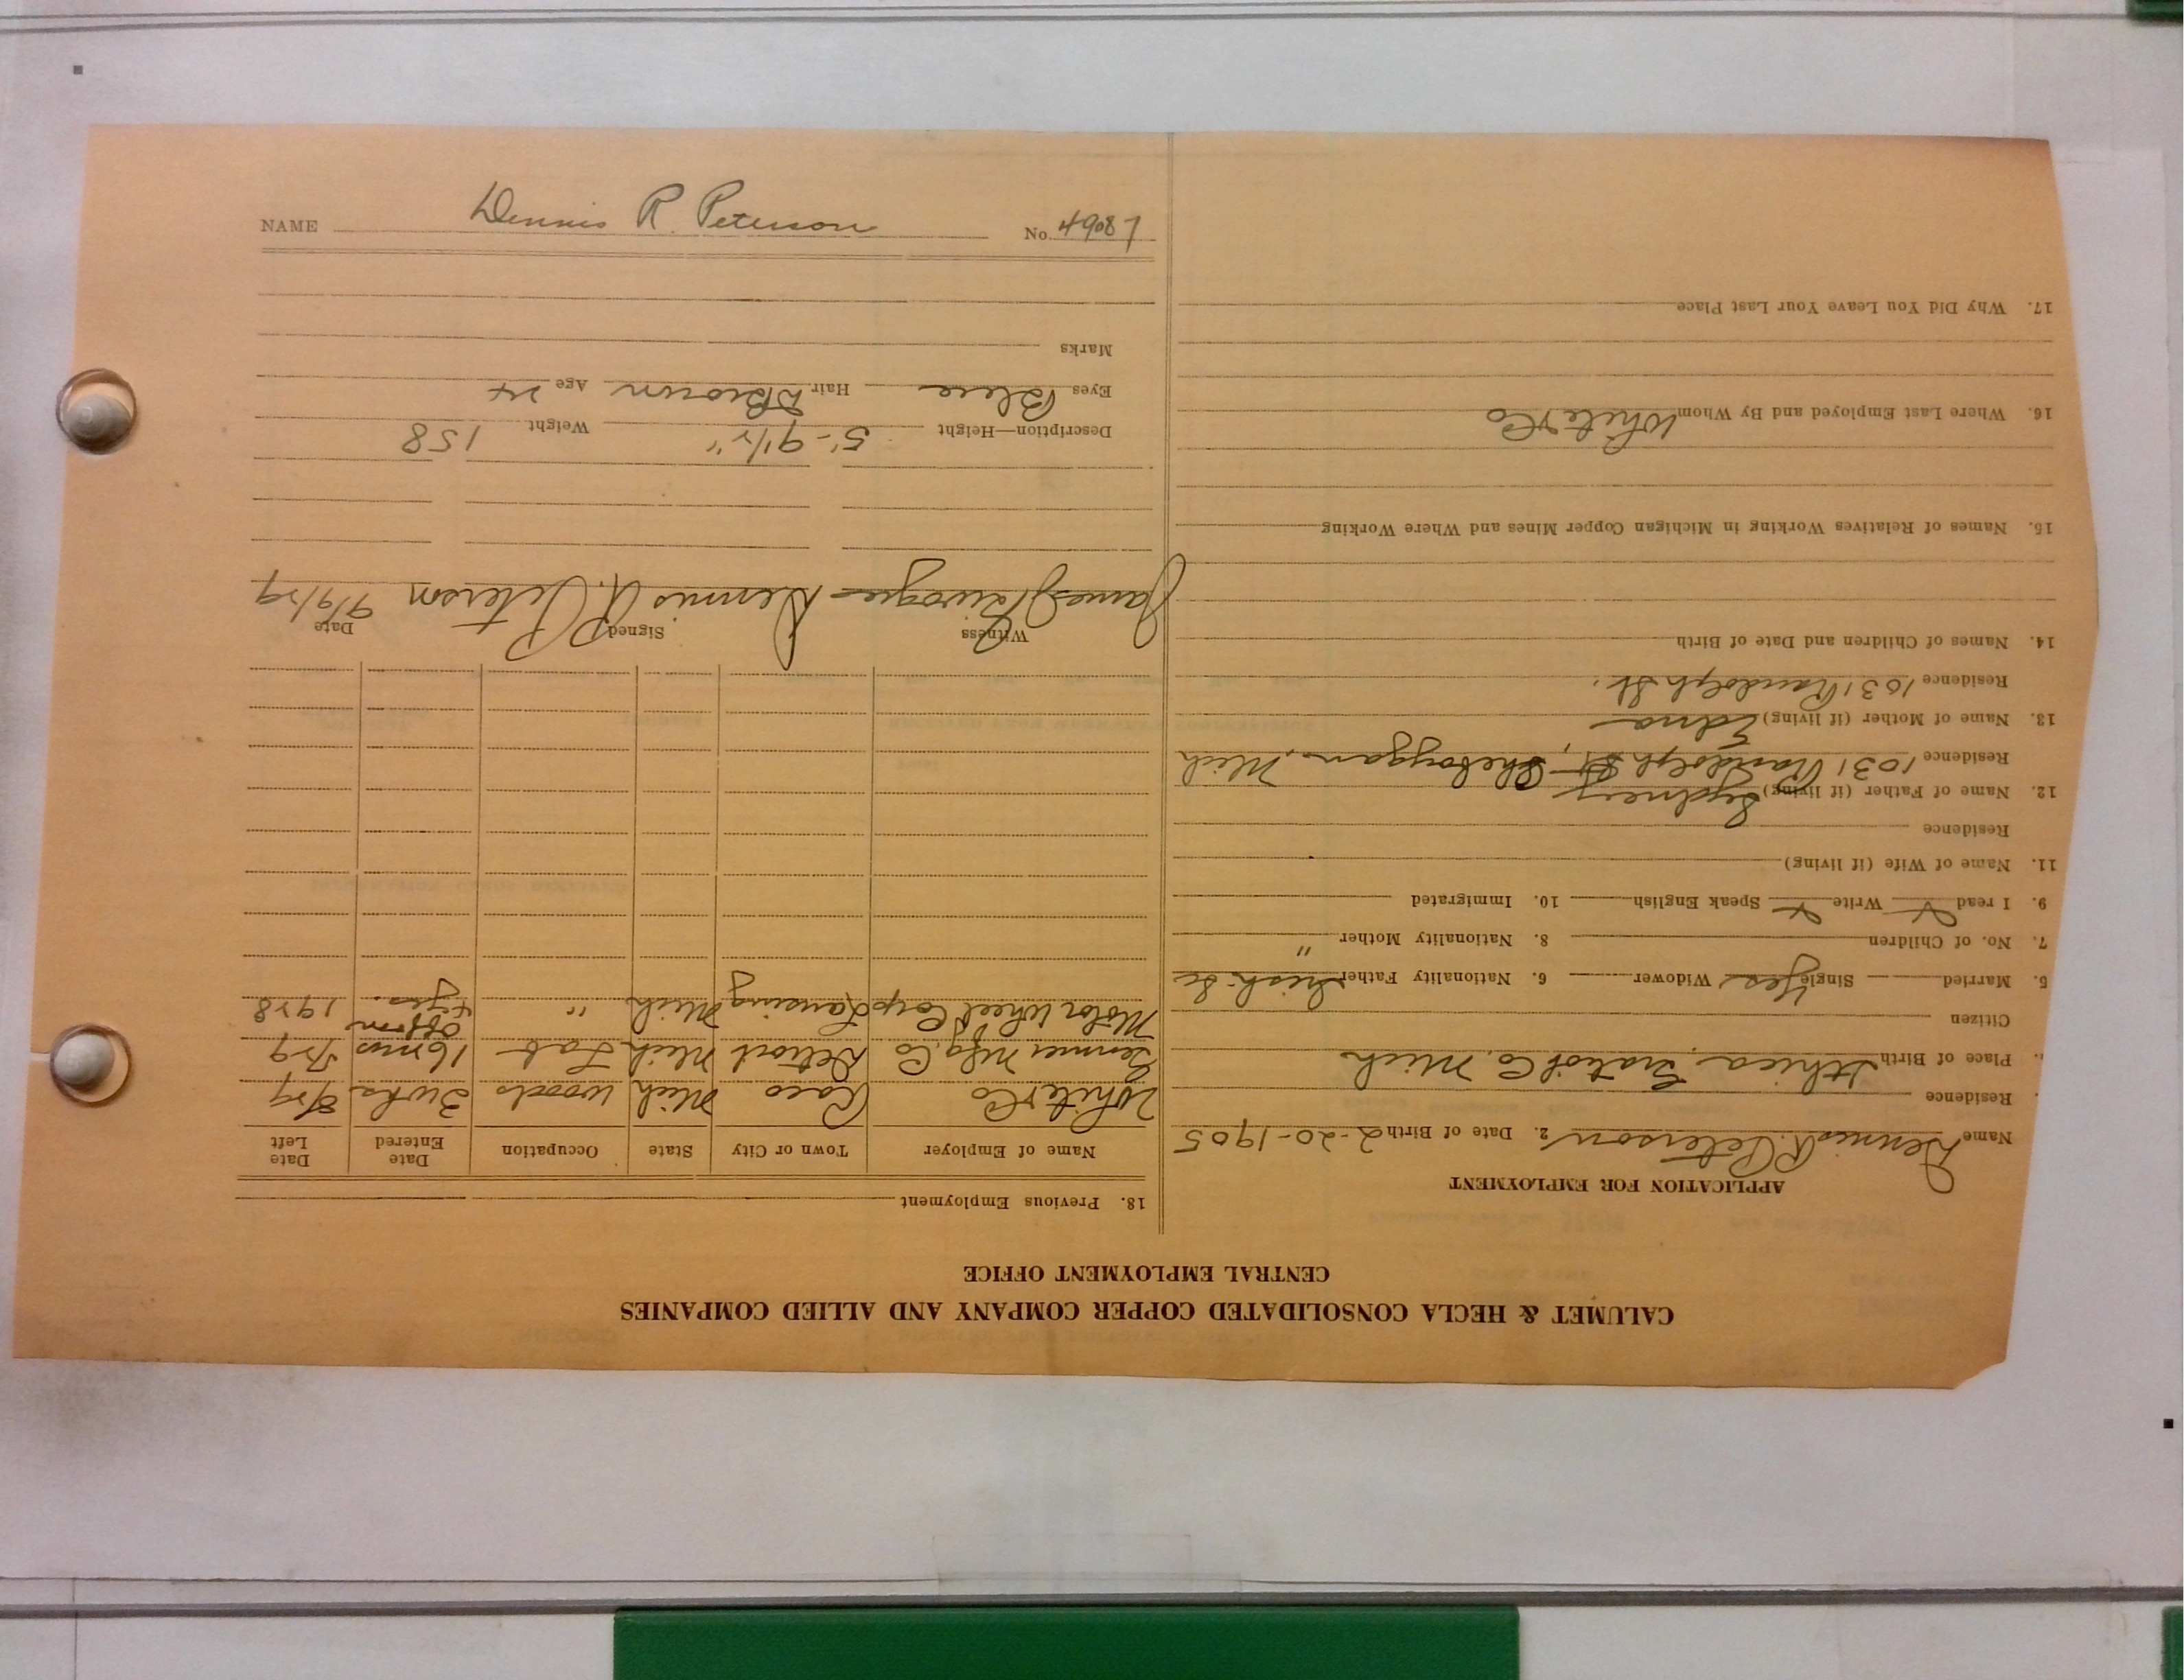 CALUMET & HECLA CONSOLIDATED COPPER COMPANY AND ALLIED COMPANIES
CENTRAL EMPLOYMENT OFFICE
APPLICATION FOR EMPLOYMENT
Name Dennis R. Peterson 2. Date of Birth 2-20-1905
Residence
Place of Birth Ithica, Gratiot Co. Mich
Citizen
5. Married Single Yes Widower 6. Nationality Father Irish-Sc
7. No. of Children 8. Nationality Mother "
9. I read Write Speak English 10. Immigrated
11. Name of Wife (if living)
Residence
12. Name of Father (if living) Sydney
Residence 1031 Randolph St, Cheboygan, Mich
13. Name of Mother (if living) Edna
Residence 1031 Randolph St.
14. Names of Children and Date of Birth
15. Names of Relatives Working in Michigan Copper Mines and Where Working
16. Where Last Employed and By Whom White & Co
17. Why Did You Leave Your Last Place
18. Previous Employment
Name of Employer Town or City State Occupation Date Entered Date Left
White & Co Raco Mich woods 3 wks 8/29
Mfg. Co Detroit Mich Lab 16 mos
Motor Wheel Corp Lansing Mich " Off & on 4 yrs. 1928
Witness Signed Date
James Dennis R. Peterson 9/9/29
Description—Height 5'-9 1/2" Weight 158
Eyes Blue Hair D Brown Age 24
Marks
NAME Dennis R. Peterson No. 49087